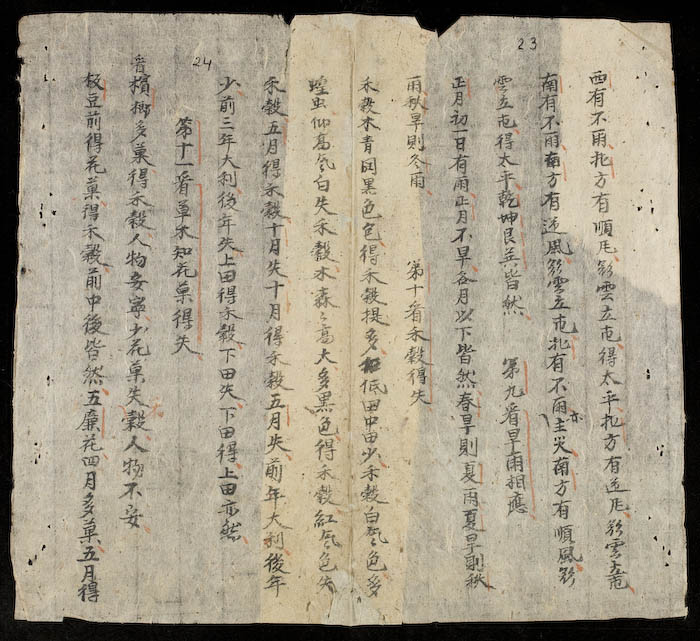 23
西有不雨北方有順風彩雲立屯得太平北方有逆風彩雲立屯
南有不雨南方有逆風彩雲立屯北有不雨亦主火南方有順風彩
雲立屯得太平乾坤艮巽皆然 第九看旱雨相應
正月初一日有雨正月不旱各月以下皆然春旱則夏雨夏旱則秋
雨秋旱則冬雨 第十看禾穀得失
禾穀木青岡黑色色得禾穀提多低田中由少禾穀白氣色多
蝗虫仙高気白失禾穀木森々高大多黑色得禾穀紅気色失
禾穀五月得禾穀十月失十月得禾穀五月失前年大利後年
24
少前三年大利後年失上田得禾穀下田失下田得上田亦然
第十一看草木知花菓得失
看檳榔多菓得禾穀人物安寧少花菓失穀人物不安
極豆前得花菓得禾穀前中後皆然五廉花四月多菓五月得